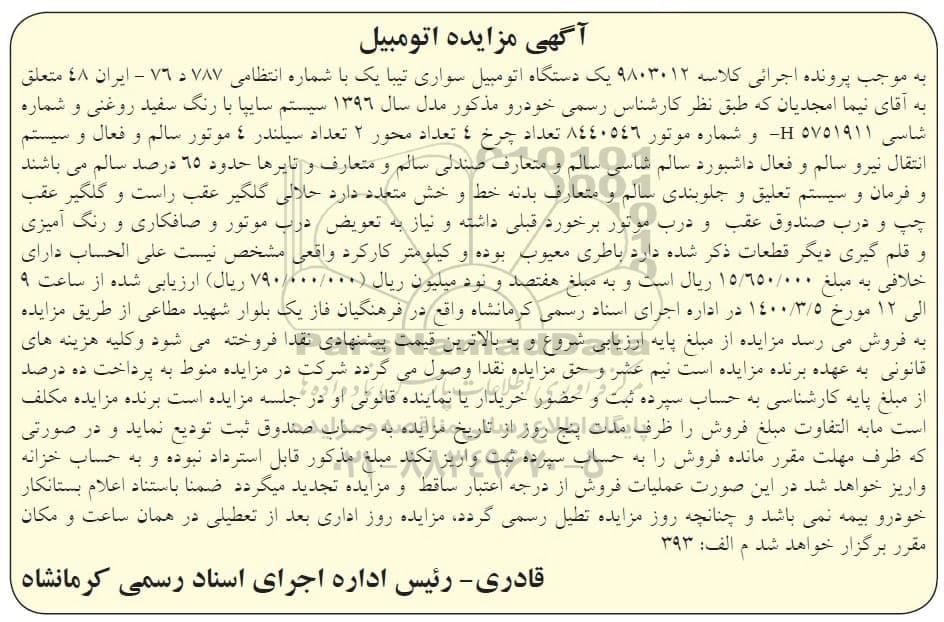 آگهی مزایده اتومبیل
به موجب پرونده اجرائی کلاسه ۹۸۰۳۰۱۲ یک دستگاه اتومبیل سواری تیبا یک با شماره انتظامی ۷۸۷ د ۷۶ - ایران ۴۸ متعلق
به آقای نیما امجدیان که طبق نظر کارشناس رسمی خودرو مذکور مدل سال ۱۳۹۶ سیستم سایپا با رنگ سفید روغنی و شماره
شاسی H ۵۷۵۱۹۱۱- و شماره موتور ۸۴۴۰۵۴۶ تعداد چرخ ۴ تعداد محور ۲ تعداد سیلندر ۴ موتور سالم و فعال و سیستم
انتقال نیرو سالم و فعال داشبورد سالم شاسی سالم و متعارف صندلی سالم و متعارف و تایرها حدود ۶۵ درصد سالم می باشند
و فرمان و سیستم تعلیق و جلوبندی سالم و متعارف بدنه خط و خش متعدد دارد حلالی گلگیر عقب راست و گلگیر عقب
چپ و درب صندوق عقب و درب موتور برخورد قبلی داشته و نیاز به تعویض درب موتور و صافکاری و رنگ آمیزی
و قلم گیری دیگر قطعات ذکر شده دارد باطری معیوب بوده و کیلومتر کارکرد واقعی مشخص نیست علی الحساب دارای
خلافی به مبلغ ۱۵/۶۵۰/۰۰۰ ریال است و به مبلغ هفتصد و نود میلیون ریال (۷۹۰/۰۰۰/۰۰۰ ریال) ارزیابی شده از ساعت ۹
الی ۱۲ مورخ ۱۴۰۰/۳/۵ در اداره اجرای اسناد رسمی کرمانشاه واقع در فرهنگیان فاز یک بلوار شهید مطاعی از طریق مزایده
به فروش می رسد مزایده از مبلغ پایه ارزیابی شروع و به بالاترین قیمت پیشنهادی نقدا فروخته می شود وکلیه هزینه های
قانونی به عهده برنده مزایده است نیم عشر و حق مزایده نقدا وصول می گردد شرکت در مزایده منوط به پرداخت ده درصد
از مبلغ پایه کارشناسی به حساب سپرده ثبت و حضور خریدار یا نماینده قانونی او در جلسه مزایده است برنده مزایده مکلف
است مابه التفاوت مبلغ فروش را ظرف مدت پنج روز از تاریخ مزایده به حساب صندوق ثبت تودیع نماید و در صورتی
که ظرف مهلت مقرر مانده فروش را به حساب سپرده ثبت واریز نکند مبلغ مذکور قابل استرداد نبوده و به حساب خزانه
واریز خواهد شد در این صورت عملیات فروش از درجه اعتبار ساقط و مزایده تجدید میگردد ضمنا باستناد اعلام بستانکار
خودرو بیمه نمی باشد و چنانچه روز مزایده تطیل رسمی گردد، مزایده روز اداری بعد از تعطیلی در همان ساعت و مکان
مقرر برگزار خواهد شد م الف: ۳۹۳
قادری- رئیس اداره اجرای اسناد رسمی کرمانشاه
ParsNamadData
۰۲۱-۸۸۳۴۹۶۷۰-۵